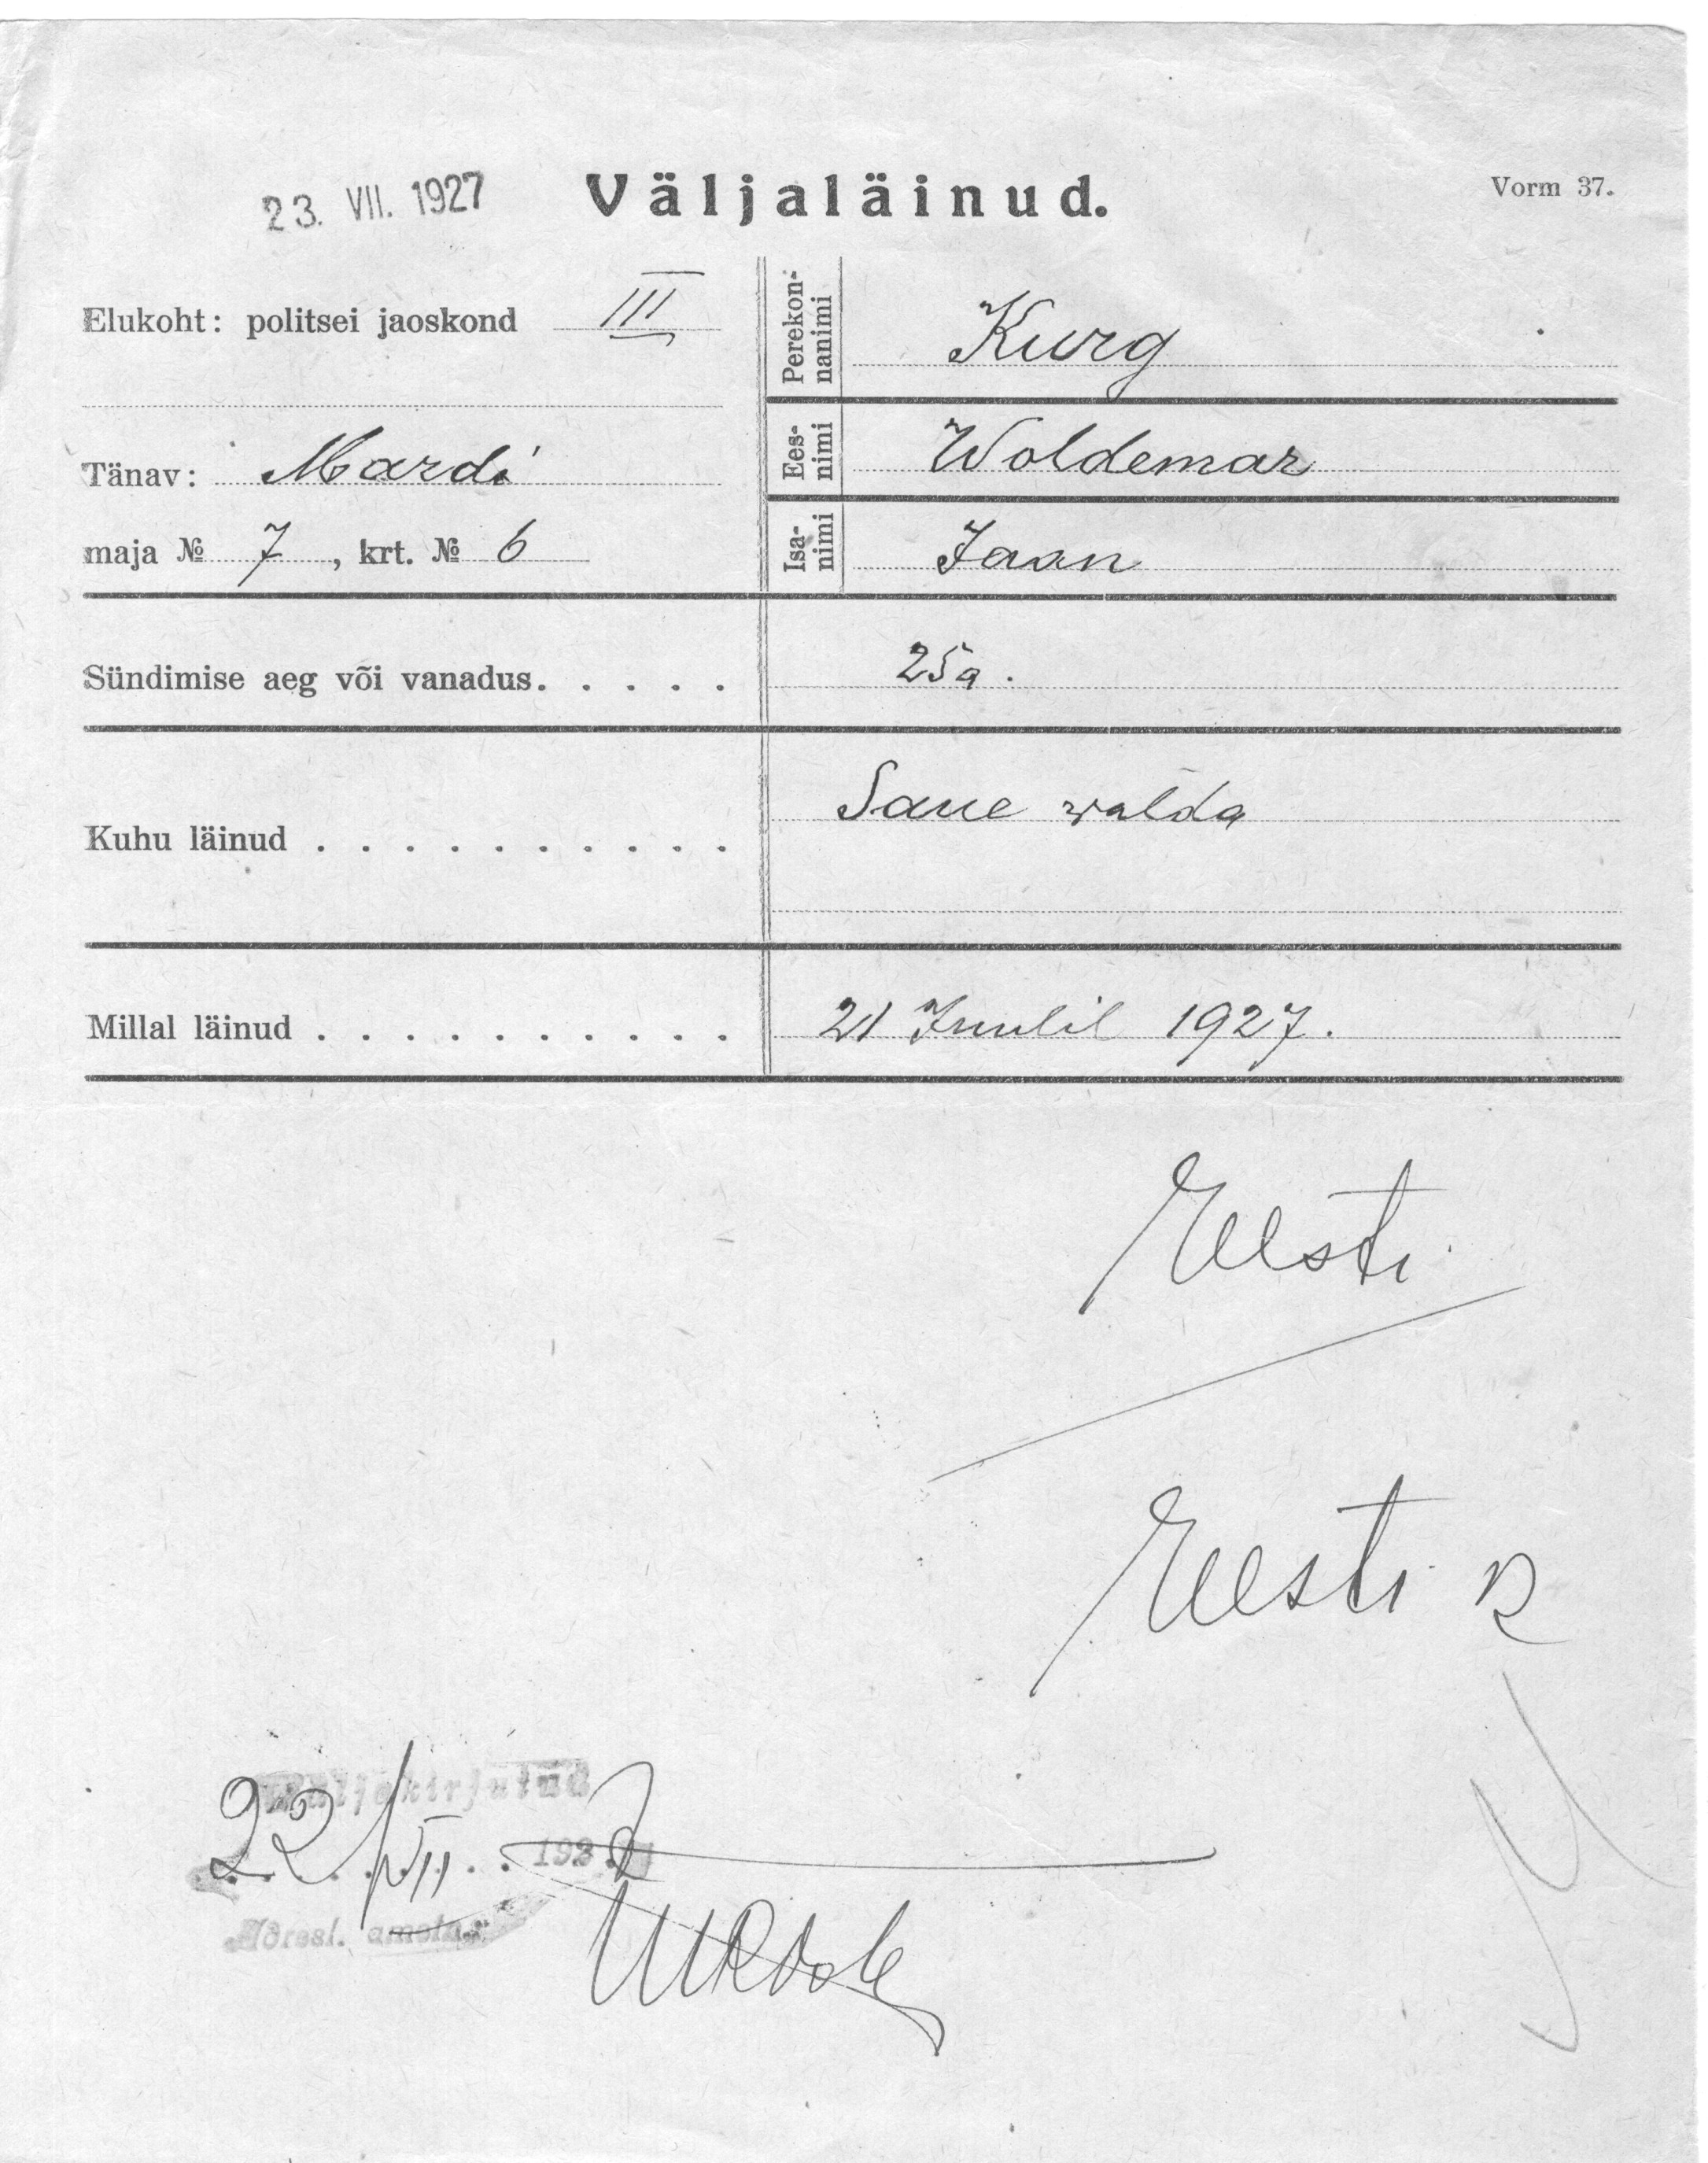 23. VII. 1927
Väljaläinud.
Vorm 37.
Elukoht: politsei jaoskond III
Tänav: Mardi
maja № 7, krt. № 6
Perekon-
nanimi
Kurg
Ees-
nimi
Woldemar
Isa-
nimi
Jaan
Sündimise aeg või vanadus. . . . . 25 a.
Kuhu läinud . . . . . . . . . . Saue walda
Millal läinud . . . . . . . . . . 21 Juulil 1927.
Eesti
Eesti
Väljakirjutud
22/VII 192
Adresl.